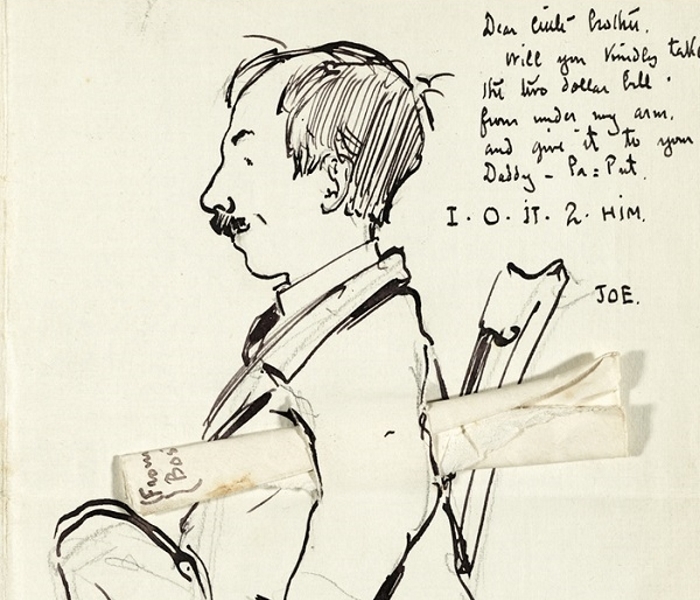 Dear little brother.
Will you kindly take
the two dollar bill
from under my arm.
and give it to your
Daddy - Pa = Put.
I. O. IT. 2. HIM.
JOE.
From
Bos